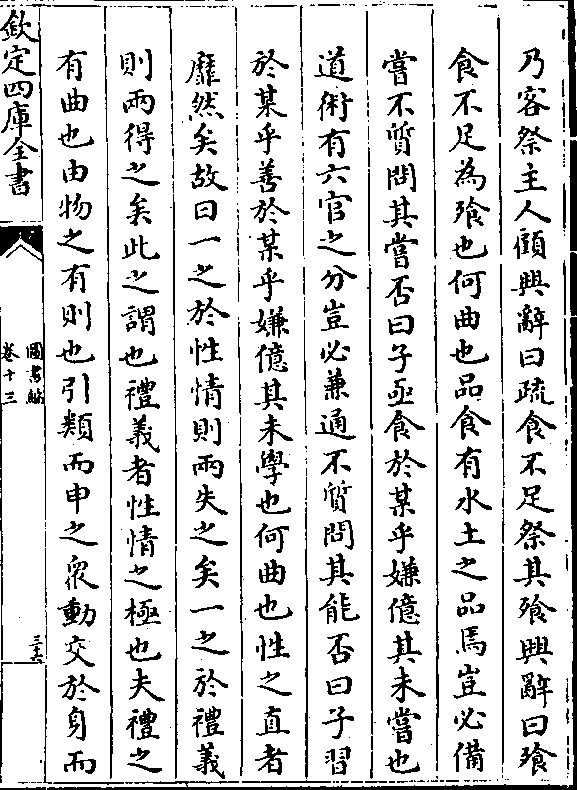 乃客祭主人顧興辭曰疏食不足祭其飱興辭曰飱
食不足為飱也何曲也品食有水土之品焉豈必備
嘗不質問其嘗否曰子亟食於某乎嫌億其未嘗也
道術有六官之分豈必兼通不質問其能否曰子習
於某乎善於某乎嫌億其未學也何曲也性之直者
靡然矣故曰一之於性情則兩失之矣一之於禮義
則兩得之矣此之謂也禮義者性情之極也夫禮之
有曲也由物之有則也引類而申之衆動交於身而
欽定四庫全書
圖書編
卷十三
三十六